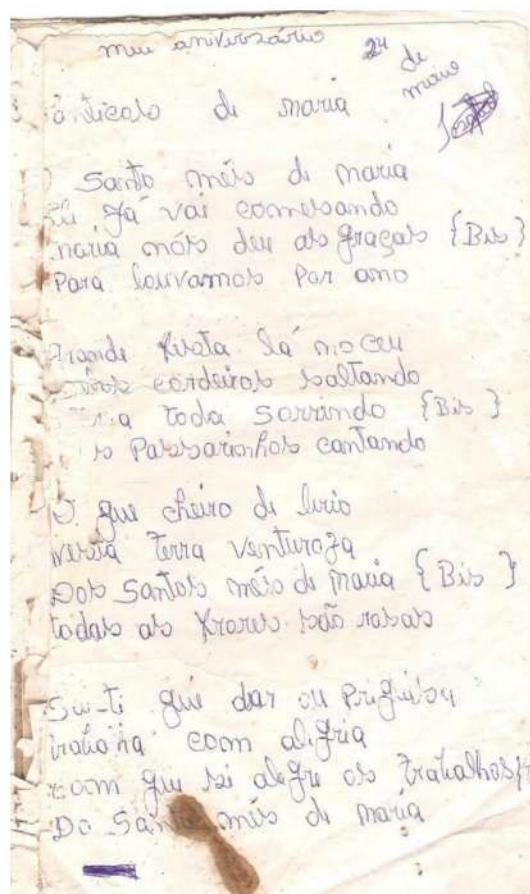 meu aniverzário 24 de maio
anticols de maria
O Santo mêis de maria
já vai comesando
maria mãis deu as graças {Bis}
Para louvamos Par ano
Grande festa lá no ceu
cordeiros saltando
toda Sorrindo {Bis}
Passarinhos cantando
O que cheiro de lirio
nesta terra venturoza
Dos Santos mêis de maria {Bis}
todas as frores são rosas
Si-ti que dar ou Priguisa
trabalha com alegria
com que si alegre os trabalhos
Do Santo mêis de maria